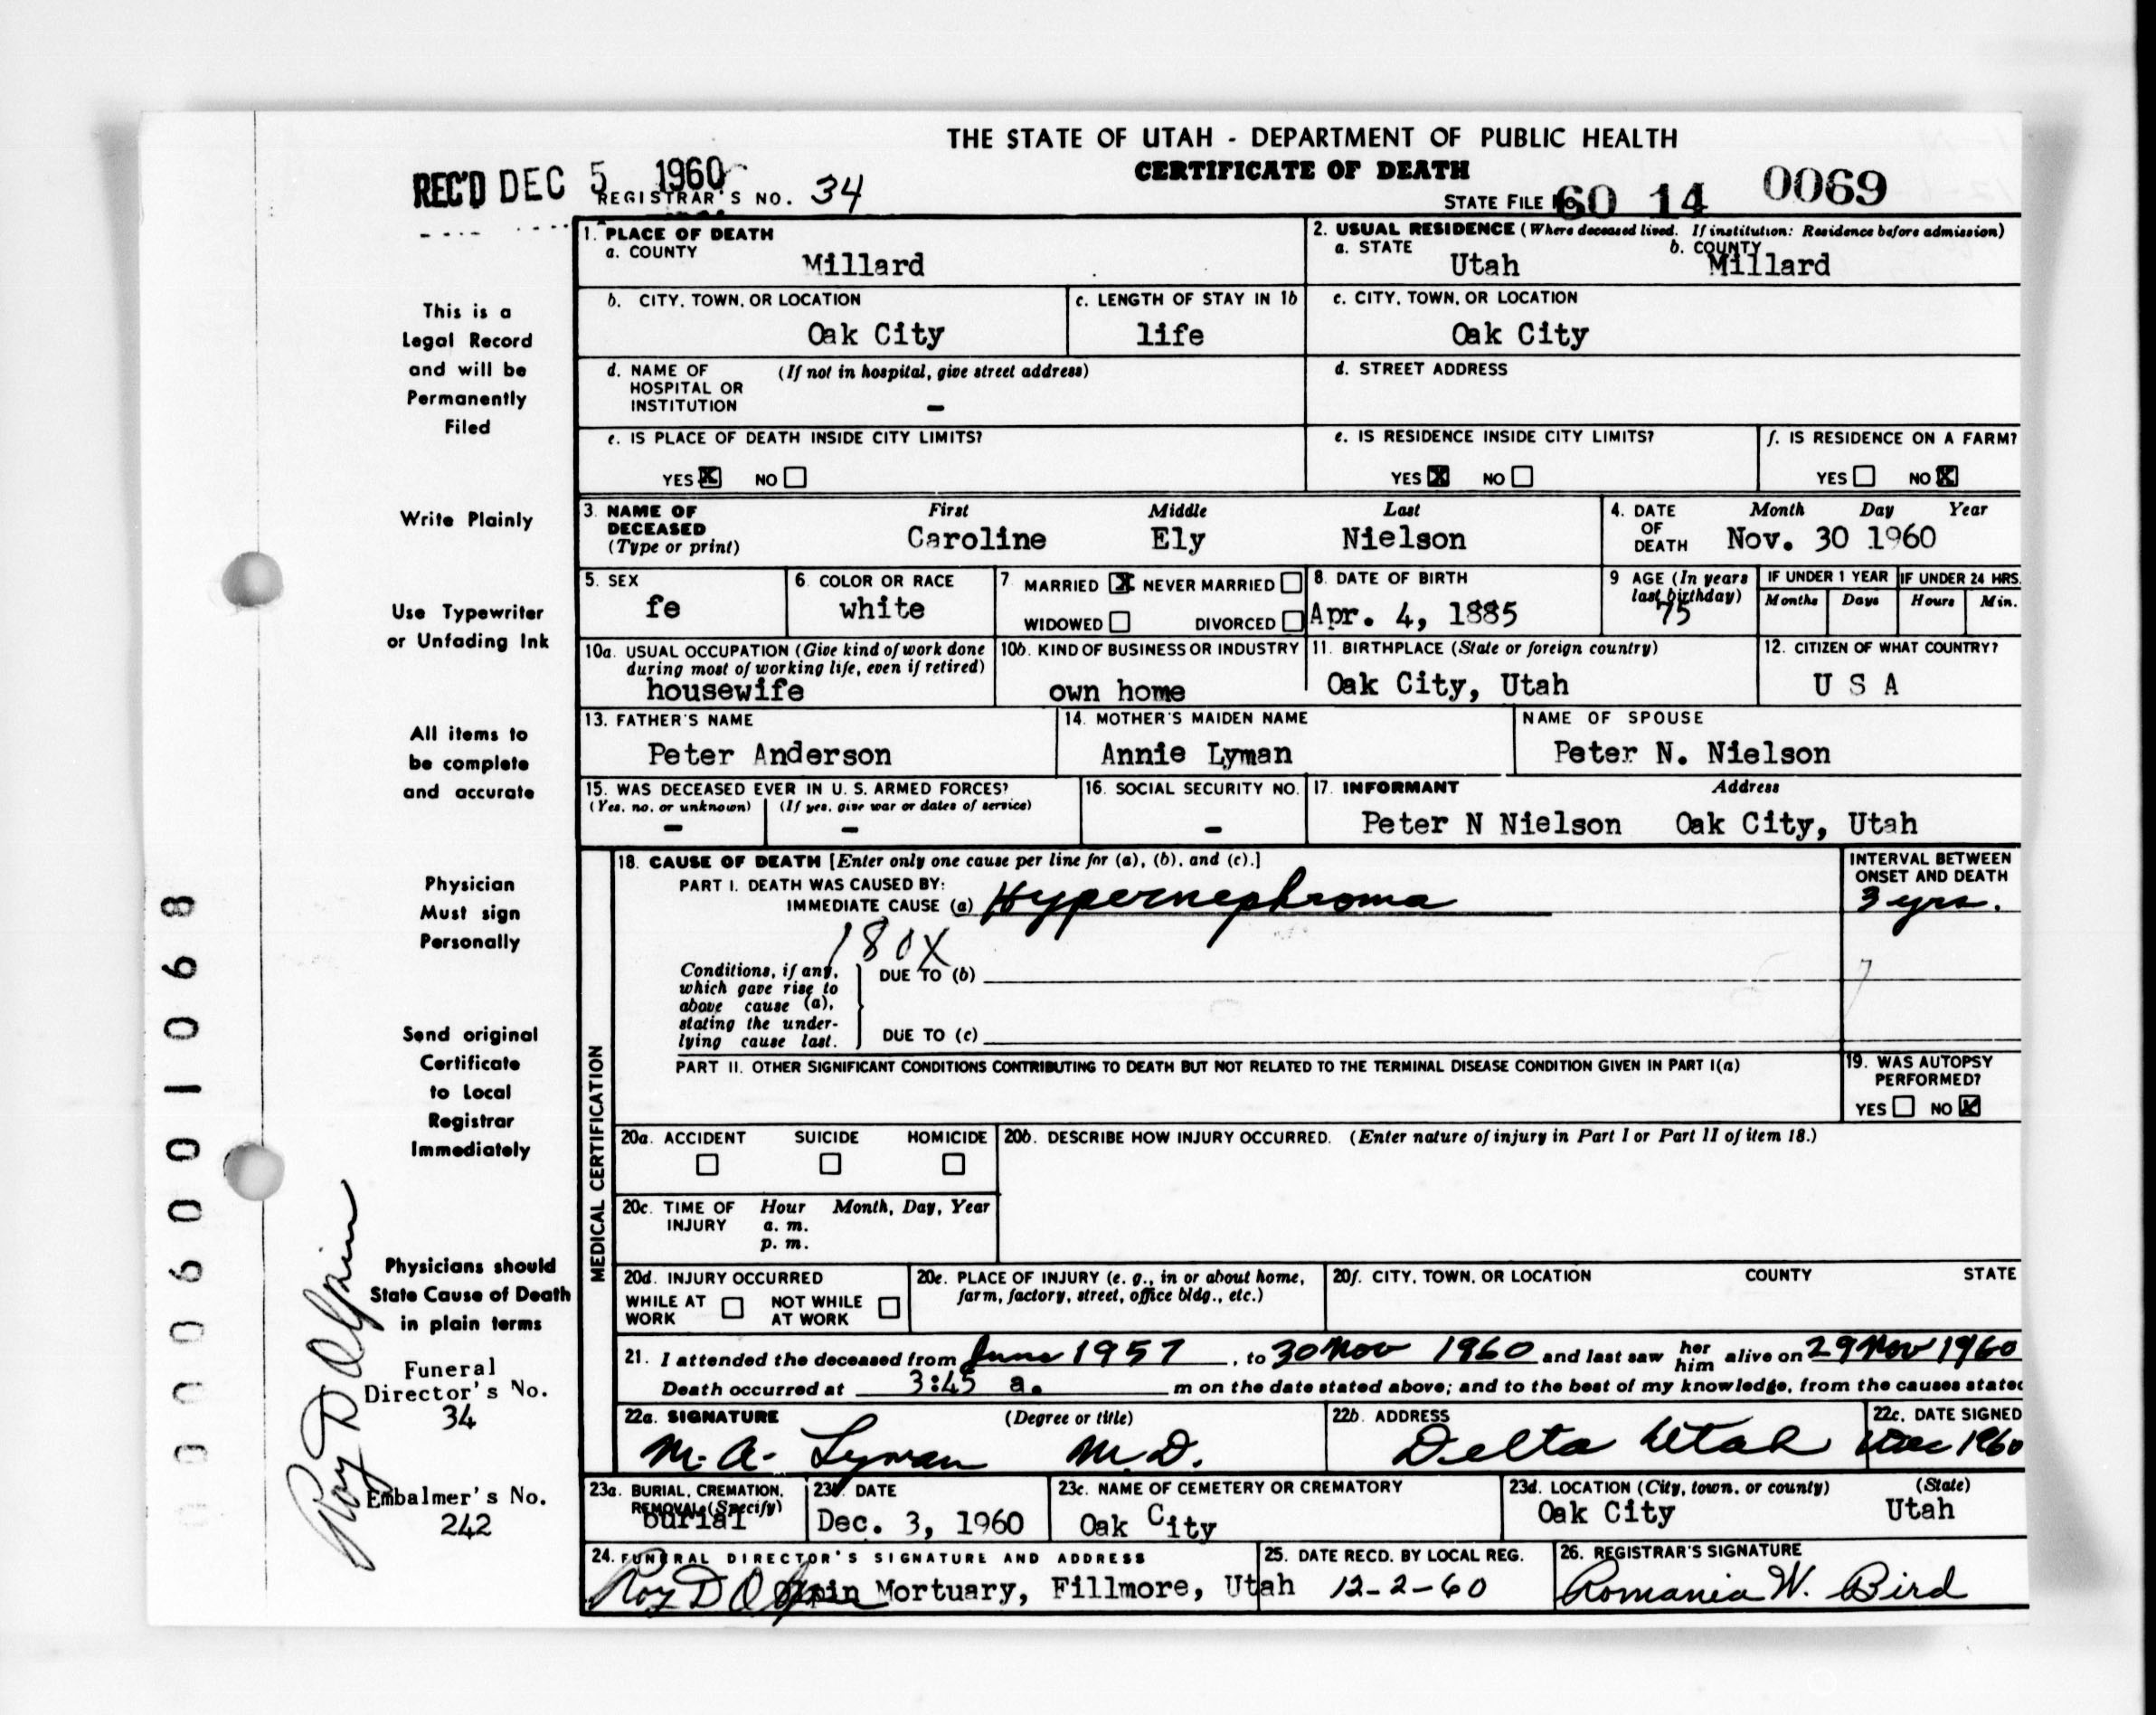 THE STATE OF UTAH - DEPARTMENT OF PUBLIC HEALTH
CERTIFICATE OF DEATH
REC'D DEC 5 1960
REGISTRAR'S NO. 34
STATE FILE 60 14 0069
1. PLACE OF DEATH
a. COUNTY
Millard
2. USUAL RESIDENCE (Where deceased lived. If institution: Residence before admission)
a. STATE
Utah
b. COUNTY
Millard
b. CITY, TOWN, OR LOCATION
Oak City
c. LENGTH OF STAY IN 1b
life
c. CITY, TOWN, OR LOCATION
Oak City
d. NAME OF HOSPITAL OR INSTITUTION (If not in hospital, give street address)
-
d. STREET ADDRESS
e. IS PLACE OF DEATH INSIDE CITY LIMITS?
YES X NO
e. IS RESIDENCE INSIDE CITY LIMITS?
YES X NO
f. IS RESIDENCE ON A FARM?
YES NO X
3. NAME OF DECEASED (Type or print)
First Middle Last
Caroline Ely Nielson
4. DATE OF DEATH
Month Day Year
Nov. 30 1960
5. SEX
fe
6. COLOR OR RACE
white
7. MARRIED X NEVER MARRIED
WIDOWED DIVORCED
8. DATE OF BIRTH
Apr. 4, 1885
9 AGE (In years last birthday)
75
IF UNDER 1 YEAR
Months Days
IF UNDER 24 HRS.
Hours Min.
10a. USUAL OCCUPATION (Give kind of work done during most of working life, even if retired)
housewife
10b. KIND OF BUSINESS OR INDUSTRY
own home
11. BIRTHPLACE (State or foreign country)
Oak City, Utah
12. CITIZEN OF WHAT COUNTRY?
U S A
13. FATHER'S NAME
Peter Anderson
14. MOTHER'S MAIDEN NAME
Annie Lyman
NAME OF SPOUSE
Peter N. Nielson
15. WAS DECEASED EVER IN U. S. ARMED FORCES?
(Yes, no, or unknown) (If yes, give war or dates of service)
- -
16. SOCIAL SECURITY NO.
-
17. INFORMANT Address
Peter N Nielson Oak City, Utah
MEDICAL CERTIFICATION
18. CAUSE OF DEATH [Enter only one cause per line for (a), (b), and (c).]
PART I. DEATH WAS CAUSED BY:
IMMEDIATE CAUSE (a) Hypernephroma
INTERVAL BETWEEN ONSET AND DEATH
3 yrs.
180X
Conditions, if any, which gave rise to above cause (a), stating the underlying cause last.
DUE TO (b)
DUE TO (c)
PART II. OTHER SIGNIFICANT CONDITIONS CONTRIBUTING TO DEATH BUT NOT RELATED TO THE TERMINAL DISEASE CONDITION GIVEN IN PART I(a)
19. WAS AUTOPSY PERFORMED?
YES NO X
20a. ACCIDENT SUICIDE HOMICIDE
20b. DESCRIBE HOW INJURY OCCURRED. (Enter nature of injury in Part I or Part II of item 18.)
20c. TIME OF INJURY Hour Month, Day, Year
a. m.
p. m.
20d. INJURY OCCURRED
WHILE AT WORK NOT WHILE AT WORK
20e. PLACE OF INJURY (e. g., in or about home, farm, factory, street, office bldg., etc.)
20f. CITY, TOWN, OR LOCATION COUNTY STATE
21. I attended the deceased from June 1957, to 30 Nov 1960 and last saw her him alive on 29 Nov 1960
Death occurred at 3:45 a. m on the date stated above; and to the best of my knowledge, from the causes stated
22a. SIGNATURE (Degree or title)
M. A. Lyman M.D.
22b. ADDRESS
Delta Utah
22c. DATE SIGNED
1 Dec 1960
23a. BURIAL, CREMATION, REMOVAL (Specify)
burial
23b. DATE
Dec. 3, 1960
23c. NAME OF CEMETERY OR CREMATORY
Oak City
23d. LOCATION (City, town, or county) (State)
Oak City Utah
24. FUNERAL DIRECTOR'S SIGNATURE AND ADDRESS
Roy D Olpin Mortuary, Fillmore, Utah
25. DATE RECD. BY LOCAL REG.
12-2-60
26. REGISTRAR'S SIGNATURE
Romania W. Bird
This is a
Legal Record
and will be
Permanently
Filed
Write Plainly
Use Typewriter
or Unfading Ink
All items to
be complete
and accurate
Physician
Must sign
Personally
Send original
Certificate
to Local
Registrar
Immediately
Physicians should
State Cause of Death
in plain terms
Funeral
Director's No.
34
Embalmer's No.
242
Roy D Olpin
0006001068